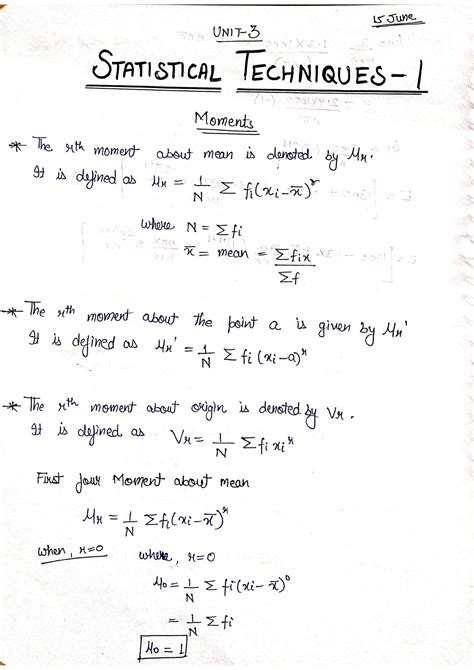 15 June
UNIT-3
STATISTICAL TECHNIQUES-1
Moments
* The rth moment about mean is denoted by μr.
It is defined as μr = 1/N Σ fi(xi-x̄)^r
where N = Σfi
x̄ = mean = Σfix/Σf
* The rth moment about the point a is given by μr'
It is defined as μr' = 1/N Σ fi(xi-a)^r
* The rth moment about origin is denoted by Vr.
It is defined as Vr = 1/N Σ fi xi^r
First four Moment about mean
μr = 1/N Σfi(xi-x̄)^r
when, r=0 where, r=0
μ0 = 1/N Σ fi(xi-x̄)^0
= 1/N Σfi
μ0 = 1